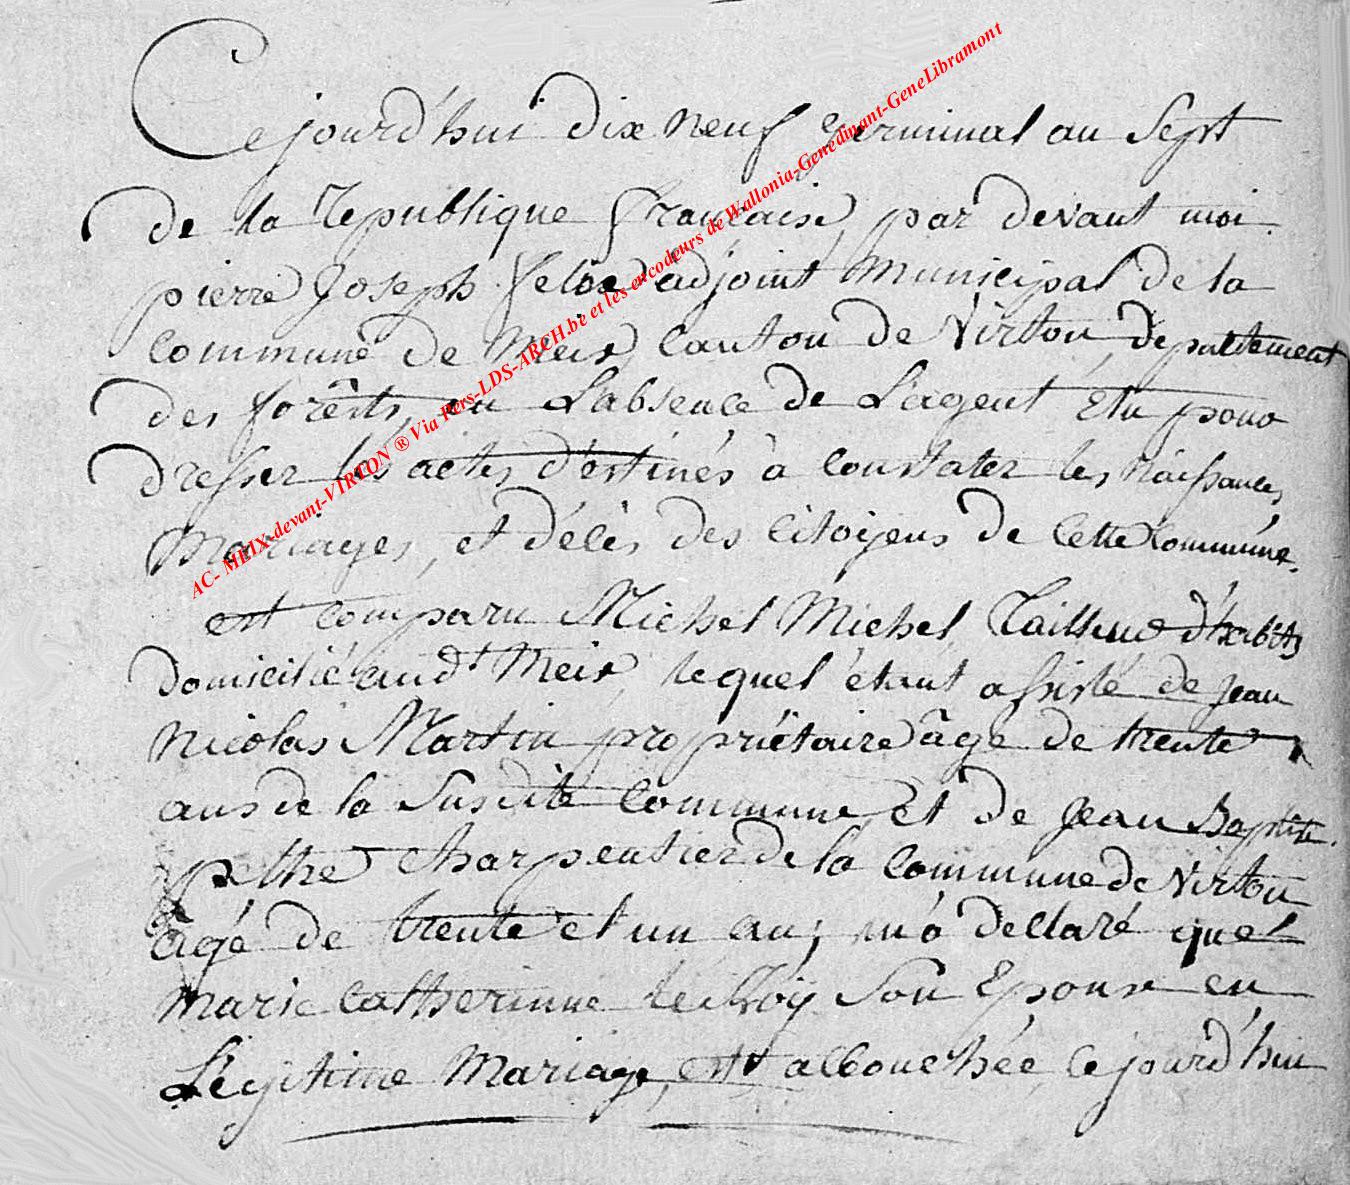 Cejourd'hui dix neuf germinal an Sept
de la republique française, par devant moi
pierre Joseph felix adjoint Municipal de la
Commune de Meix, Canton de Virton, departement
des forêts, en L'absence de L'agent Elu pour
dresser les actes d'estinés à Constater les Naissances
Mariages, et décès des Citoyens de Cette Commune.
est comparu Michel Michel, Tailleur d'habits
domicilié aud.t Meix, lequel étant assisté de Jean
Nicolas Martin propriétaire âge de trente
ans de la Susdite Commune Et de Jean Baptiste
pethe Charpentier de la Commune de Virton
agé de trente et un an, m'a declaré quel
Marie Catherinne le Roy Son Epouse en
Légitime Mariage, est accouchée, Cejourd'hui
AC- MEIX-devant-VIRTON ® Via Pers-LDS-ARCH.be et les encodeurs de Wallonia-Genedinant-GeneLibramont